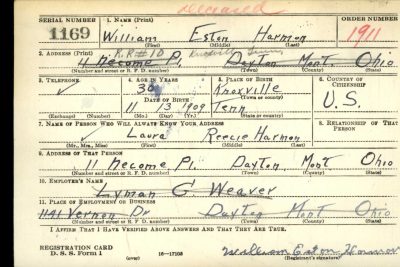 deceased
SERIAL NUMBER 1. NAME (Print) ORDER NUMBER
1169 William Eston Harmon 1911
(First) (Middle) (Last)
2. ADDRESS (Print) R.R.#
4 Mecome Pl. Dayton Mont. Ohio
(Number and street or R. F. D. number) (Town) (County) (State)
3. TELEPHONE 4. AGE IN YEARS 5. PLACE OF BIRTH 6. COUNTRY OF CITIZENSHIP
30 Knoxville
DATE OF BIRTH (Town or county)
11 13 1909 Tenn U.S.
(Exchange) (Number) (Mo.) (Day) (Yr.) (State or country)
7. NAME OF PERSON WHO WILL ALWAYS KNOW YOUR ADDRESS 8. RELATIONSHIP OF THAT PERSON
Laura Reecie Harmon
(Mr., Mrs., Miss) (First) (Middle) (Last)
9. ADDRESS OF THAT PERSON
11 Mecome Pl. Dayton, Mont Ohio
(Number and street or R. F. D. number) (Town) (County) (State)
10. EMPLOYER'S NAME
Lyman G Weaver
11. PLACE OF EMPLOYMENT OR BUSINESS
1141 Vernon Dr Dayton Mont Ohio
(Number and street or R. F. D. number) (Town) (County) (State)
I AFFIRM THAT I HAVE VERIFIED ABOVE ANSWERS AND THAT THEY ARE TRUE.
REGISTRATION CARD
D. S. S. Form 1 16-17105 William Eston Harmon
(over) (Registrant's signature)